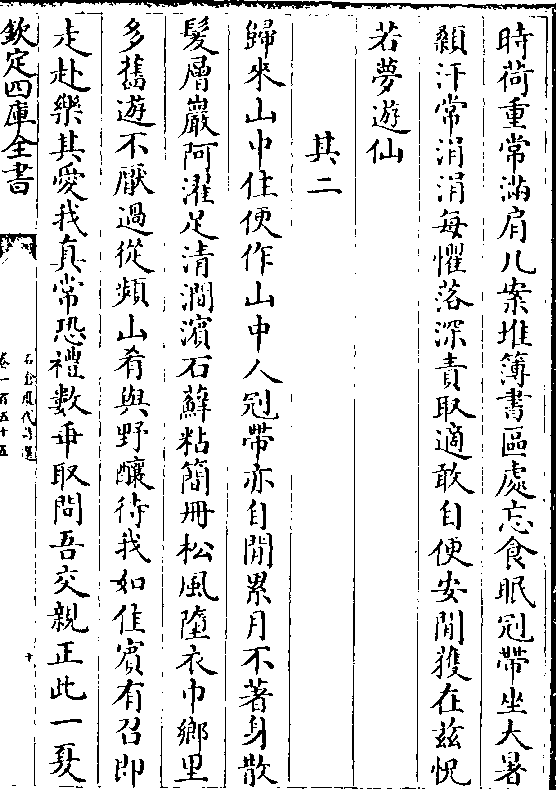 時荷重常滿肩几案堆簿書區處忘食眠冠帶坐大暑
顙汗常涓涓每懼落深責取適敢自便安閒獲在兹怳
若夢遊仙
其二
歸來山中住便作山中人冠帶亦自閒累月不著身散
髮層巖阿濯足清澗濱石蘚粘簡冊松風墮衣巾鄉里
多舊遊不厭過從頻山肴與野釀待我如佳賓有召即
走赴樂其愛我真常恐禮數乖取問吾交親正此一爰
欽定四庫全書
石倉歷代詩選
卷一百五十五
十